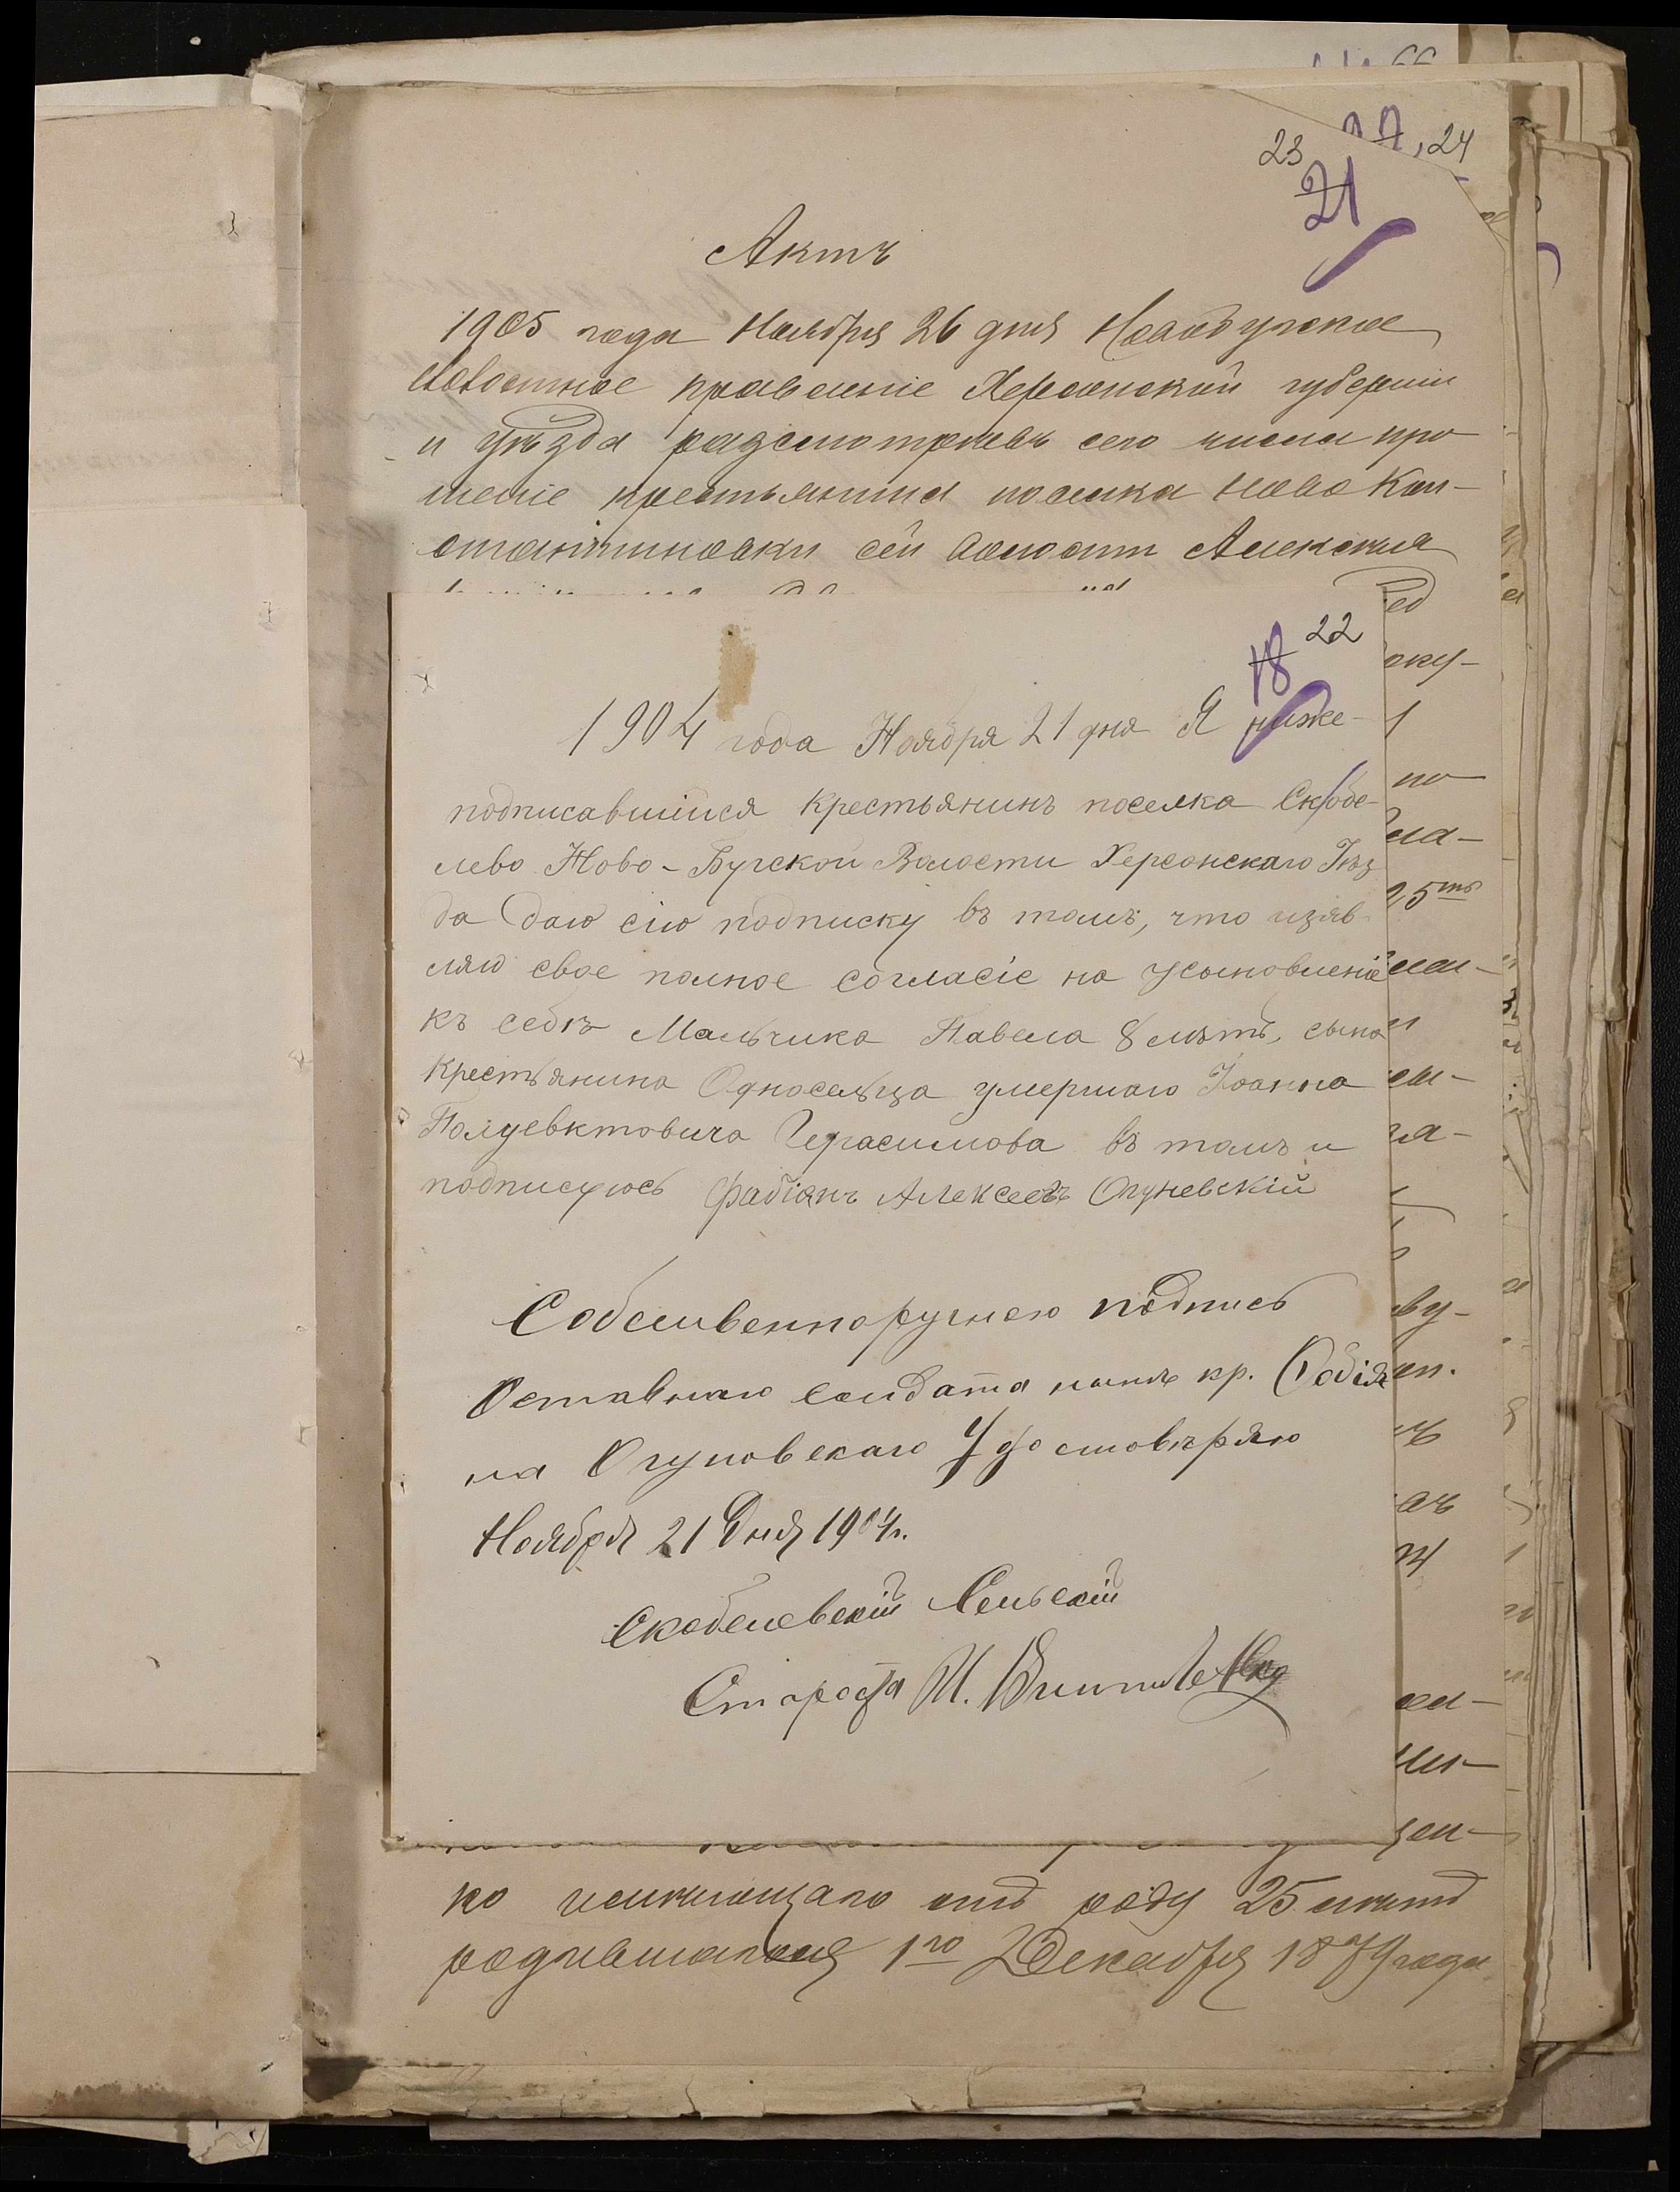 23 27, 24
21
Актъ
1905 года Ноября 26 дня Новобугское
Волостное правленіе Херсонской губерніи
и уѣзда разсмотрѣвъ сего числа про
шеніе крестьянина поселка Ново Кон-
стантиновки сей волости Алексѣя
18 22
1904 года Ноября 21 дня Я ниже-
подписавшійся крестьянинъ поселка Скобе-
лево Ново-Бугской Волости Херсонскаго Уѣз
да даю сію подписку въ томъ, что изяв
ляю свое полное согласіе на усыновленіе
къ себѣ Мальчика Павела 8 лѣтъ, сына
крестьянина Односельца умершаго Іоанна
Полуевктовича Герасимова въ томъ и
подписуюсь Фабіянъ Алексеевъ Огуневскій
Собственноручною подпись
Оставнаго солдата нынѣ кр. Фабія
на Огуновскаго Удостовѣряю
Ноября 21 Дня 1904 г.
Скобелевскій Сельскій
Староста И.
оку-
по
25ть
ву-
ко имѣющаго отъ роду 25 лѣтъ
родившагося 1го Декабря 1879 года